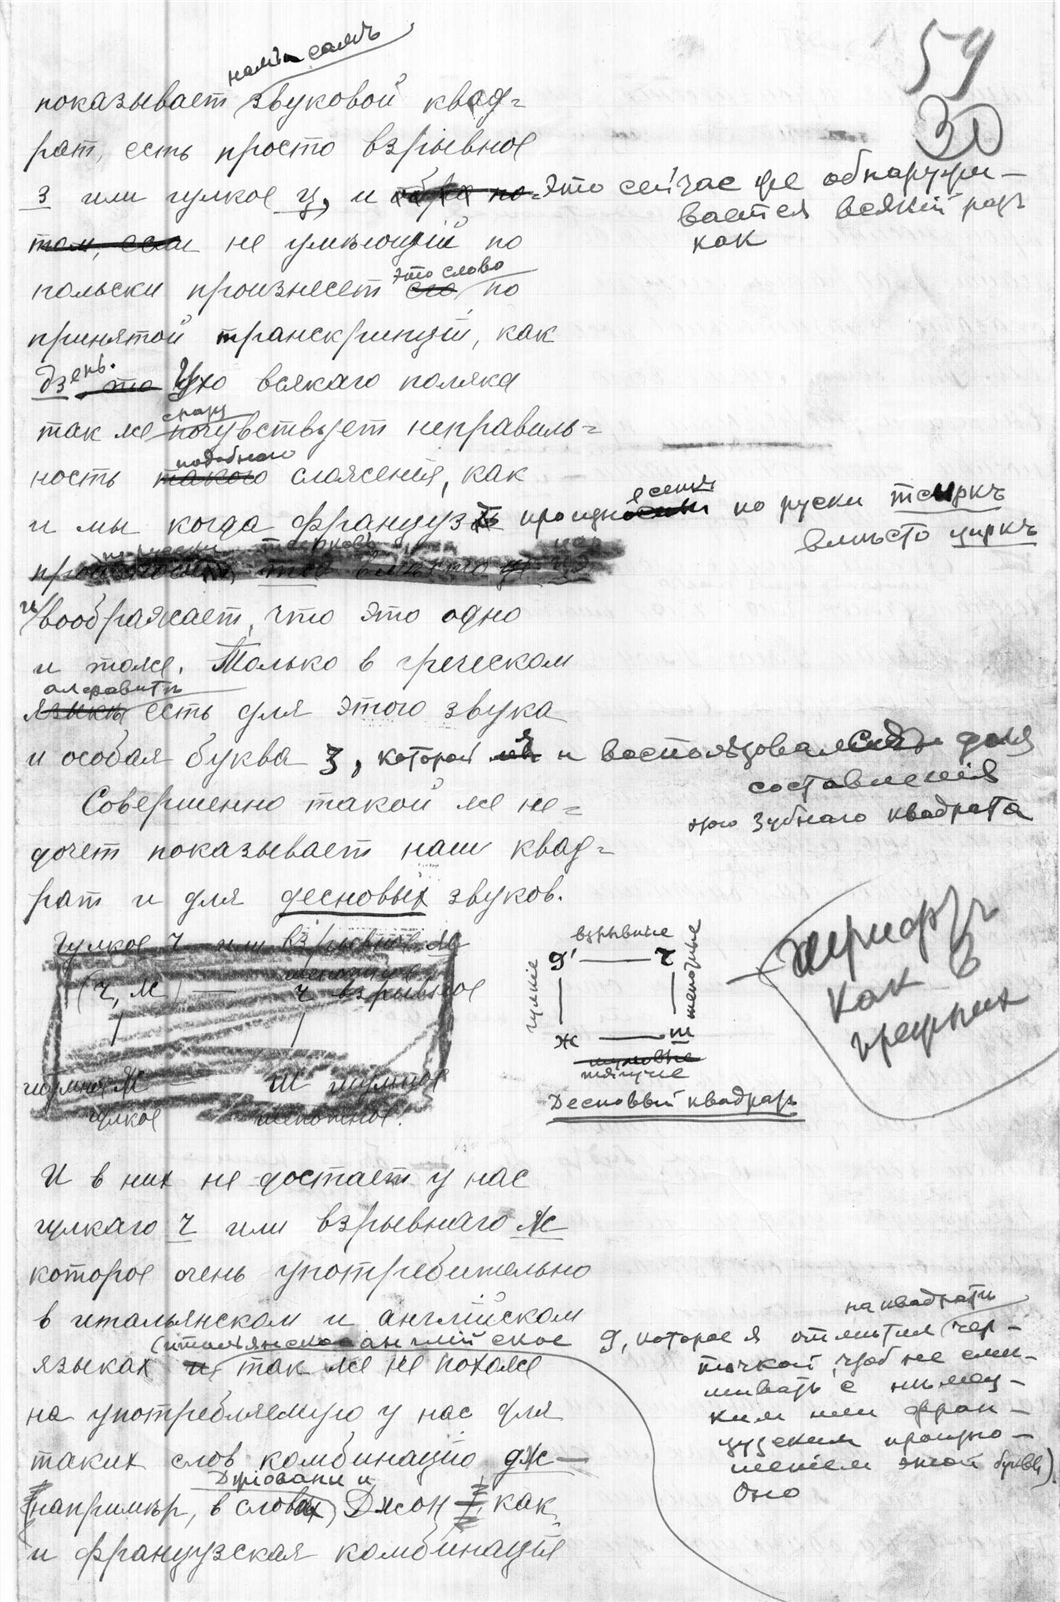 59
30
намъ самъ
показываетъ звуковой квад=
рат, есть просто взрывное
з или гулкое ц, и это сейчас же обнаружи-
вается всякій разъ
как
не умѣющій по
польски произнесет это слово по
принятой транскрипціи, как
дзень. Ухо всякаго поляка
так же сразу почувствует неправиль=
ность подобного слоясенія, как
и мы когда француз произносит по руски тсиркъ
вмѣсто циркъ
и воображает, что это одно
и тоже. Только в греческом
алфавитѣ есть для этого звука
и особая буква ʒ, которой я и воспользовался для
составленія
этого зубнаго квадрата
Совершенно такой же не=
дочет показывает наш квад=
рат и для десновых звуков.
Гулкое ч или взрывное ж
(ч, ж) — ч взрывное
шумное ж — ш шумное
гулкое шепотное.
взрывные
гулкіе
д' — ч
шепотные
ж — ш
тягучіе
Десновый квадратъ
шрифтъ
как в
прежних
И в них не достает у нас
гулкаго ч или взрывнаго ж
которое очень употребительно
в итальянском и англійском
языках (итальянское англійское g, которое я отмѣтил на квадратѣ чер-
точкой, чтоб не смѣ-
шивать с нѣмец-
ким или фран-
цузским произно-
шеніем этой буквы).
Оно
так же не похоже
на употребляемую у нас для
таких слов комбинацію дж—
например, в словах Джіовани и Джон, как
и французская комбинація